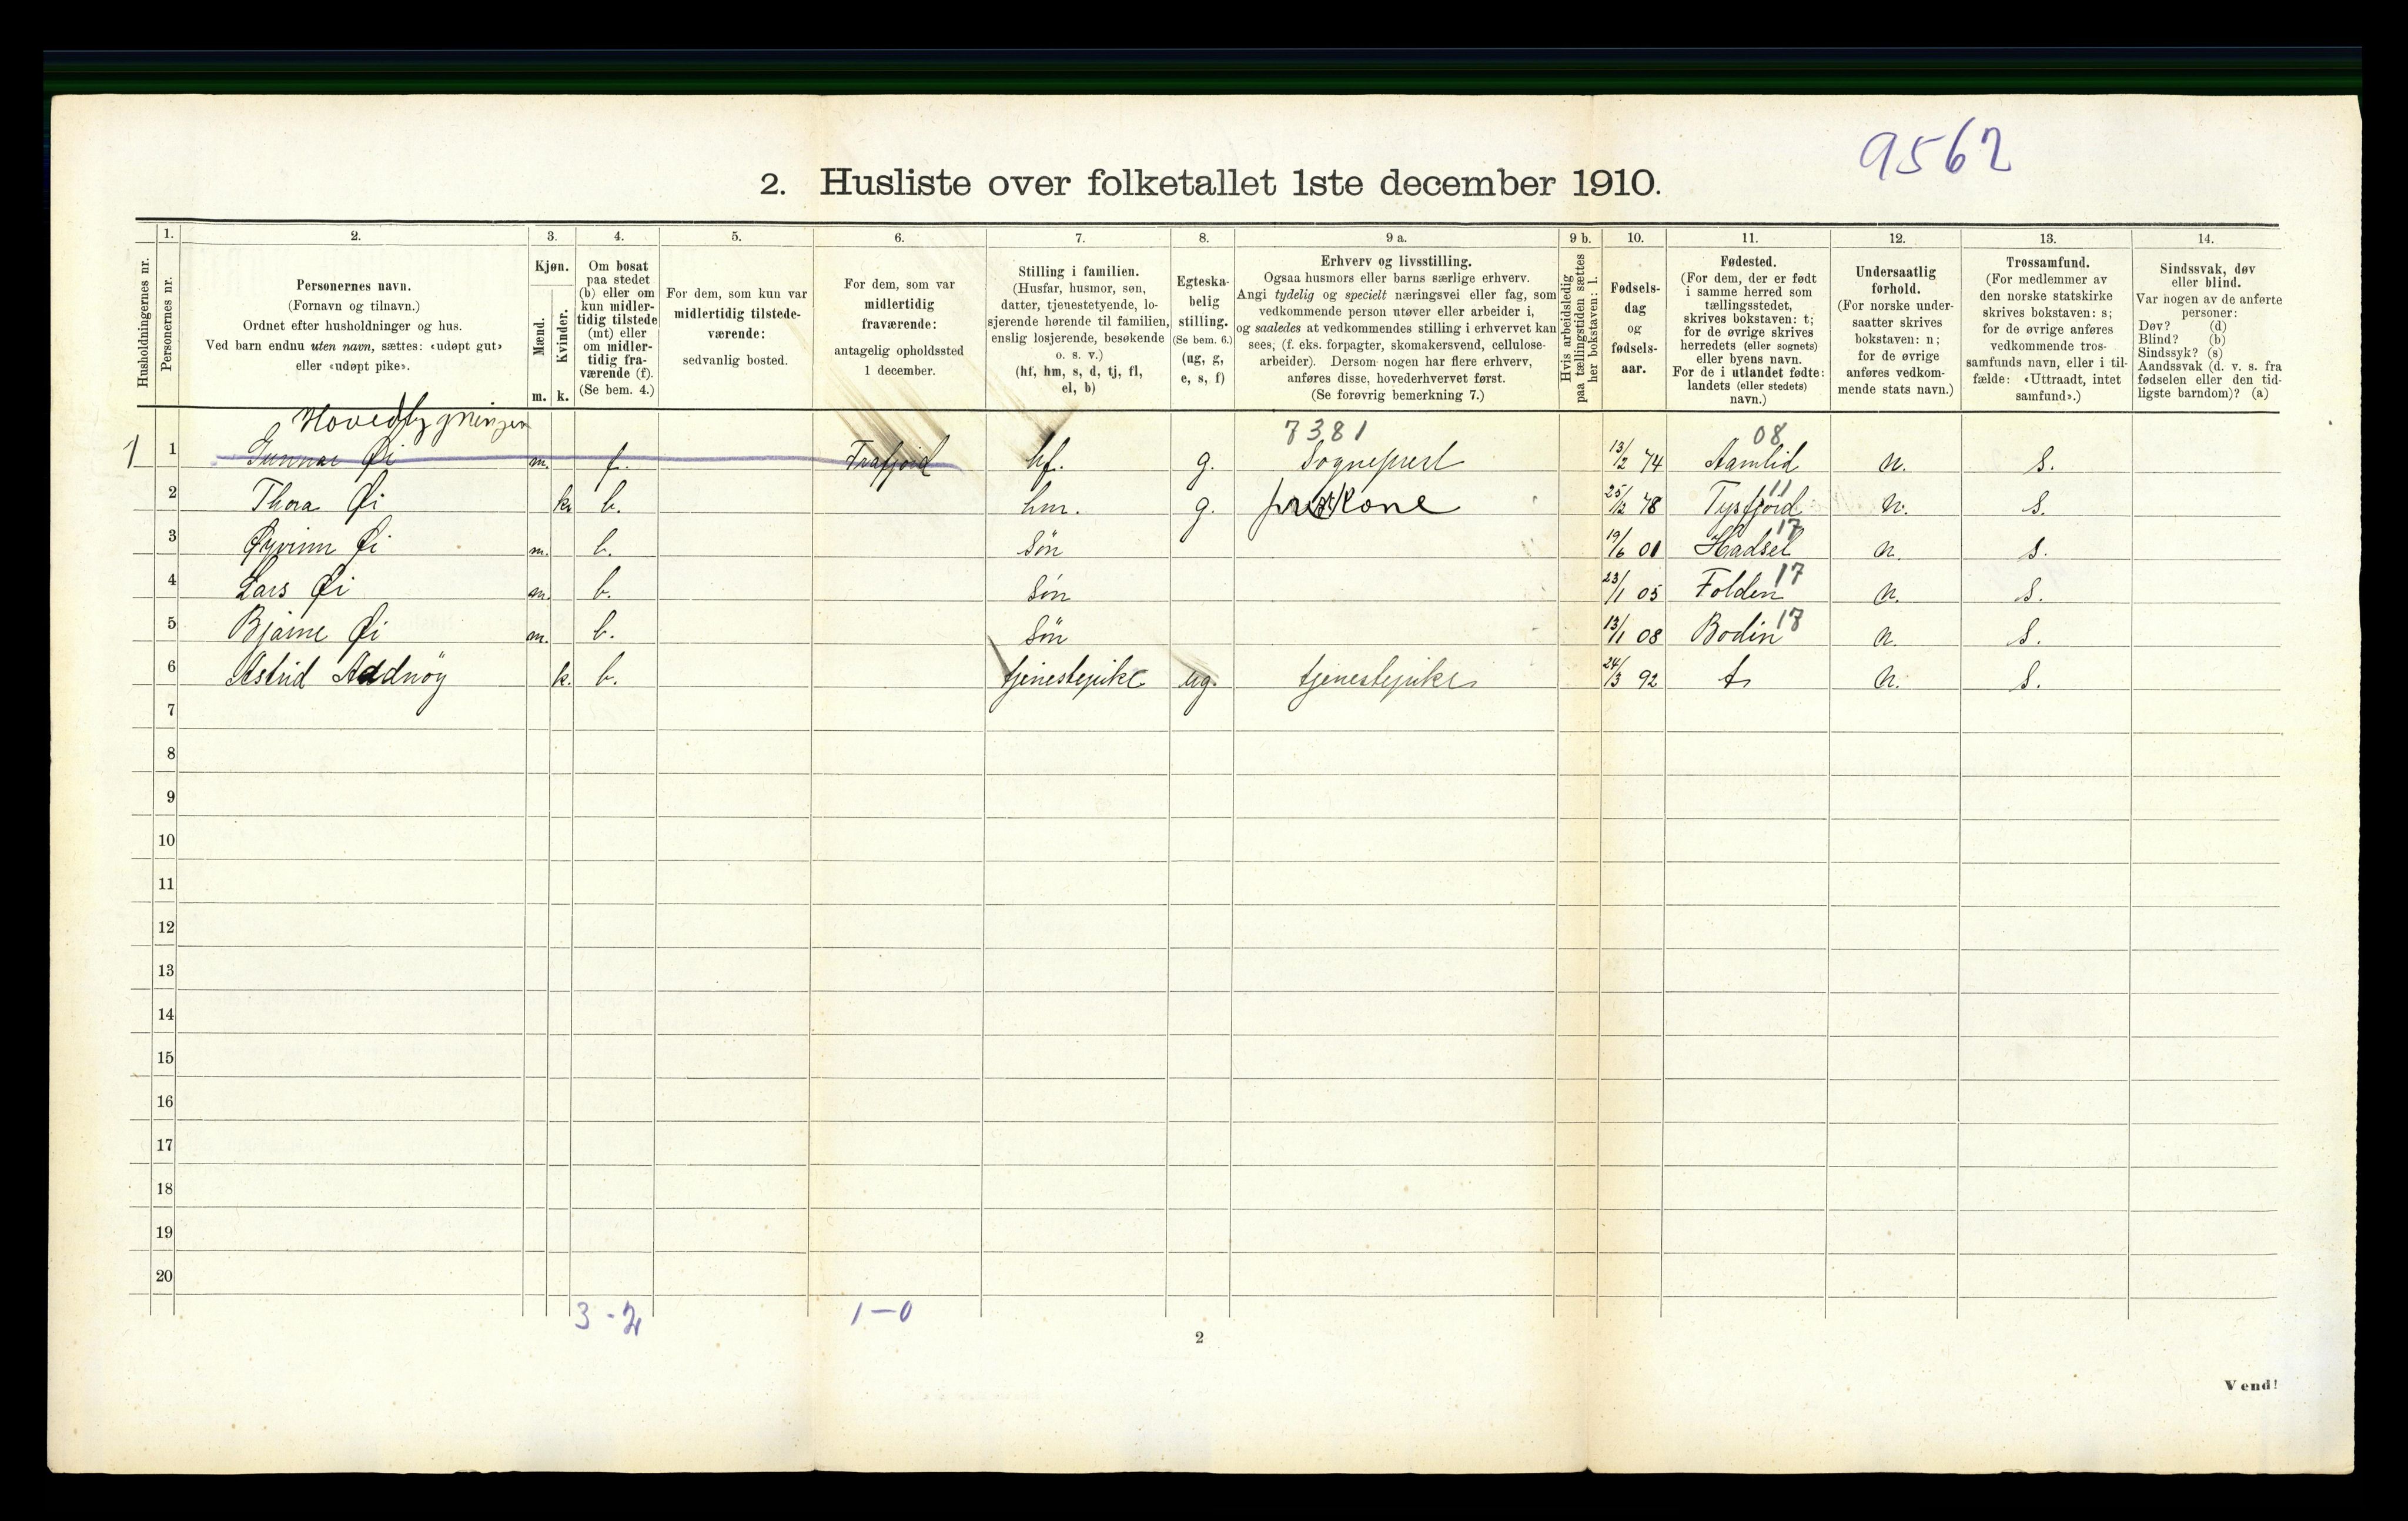 9562
2. Husliste over folketallet 1ste december 1910.
Husholdningernes nr.
1.
Personernes nr.
2.
Personernes navn.
(Fornavn og tilnavn.)
Ordnet efter husholdninger og hus.
Ved barn endnu uten navn, sættes: «udøpt gut»
eller «udøpt pike».
3.
Kjøn.
Mænd.
Kvinder.
m. k.
4.
Om bosat
paa stedet
(b) eller om
kun midler-
tidig tilstede
(mt) eller
om midler-
tidig fra-
værende (f).
(Se bem. 4.)
5.
For dem, som kun var
midlertidig tilstede-
værende:
sedvanlig bosted.
6.
For dem, som var
midlertidig
fraværende:
antagelig opholdssted
1 december.
7.
Stilling i familien.
(Husfar, husmor, søn,
datter, tjenestetyende, lo-
sjerende hørende til familien,
enslig losjerende, besøkende
o. s. v.)
(hf, hm, s, d, tj, fl,
el, b)
8.
Egteska-
belig
stilling.
(Se bem. 6.)
(ug, g,
e, s, f)
9 a.
Erhverv og livsstilling.
Ogsaa husmors eller barns særlige erhverv.
Angi tydelig og specielt næringsvei eller fag, som
vedkommende person utøver eller arbeider i,
og saaledes at vedkommendes stilling i erhvervet kan
sees, (f. eks. forpagter, skomakersvend, cellulose-
arbeider). Dersom nogen har flere erhverv,
anføres disse, hovederhvervet først.
(Se forøvrig bemerkning 7.)
9 b.
Hvis arbeidsledig
paa tællingstiden sættes
her bokstaven: l.
10.
Fødsels-
dag
og
fødsels-
aar.
11.
Fødested.
(For dem, der er født
i samme herred som
tællingsstedet,
skrives bokstaven: t;
for de øvrige skrives
herredets (eller sognets)
eller byens navn.
For de i utlandet fødte:
landets (eller stedets)
navn.)
12.
Undersaatlig
forhold.
(For norske under-
saatter skrives
bokstaven: n;
for de øvrige
anføres vedkom-
mende stats navn.)
13.
Trossamfund.
(For medlemmer av
den norske statskirke
skrives bokstaven: s;
for de øvrige anføres
vedkommende tros-
samfunds navn, eller i til-
fælde: «Uttraadt, intet
samfund».)
14.
Sindssvak, døv
eller blind.
Var nogen av de anførte
personer:
Døv? (d)
Blind? (b)
Sindssyk? (s)
Aandssvak (d. v. s. fra
fødselen eller den tid-
ligste barndom)? (a)
Hovedbygningen
7381 08
1 1 Gunnar Øi m. f. Frafjord hf. g. Sogneprest 13/2 74 Aamlid n. s.
2 Thora Øi k. b. hm. g. prestkone 25/12 78 Tysfjord 11 n. s.
3 Øyvinn Øi m. b. Søn 19/6 01 Hadsel 17 n. s.
4 Lars Øi m. b. Søn 23/1 05 Folden 17 n. s.
5 Bjarne Øi m. b. Søn 13/1 08 Bodin 17 n. s.
6 Astrid Aadnöy k. b. tjenestepike ug. tjenestepike 24/3 92 t. n. s.
7
8
9
10
11
12
13
14
15
16
17
18
19
20
3 - 2 1 - 0
2
Vend!